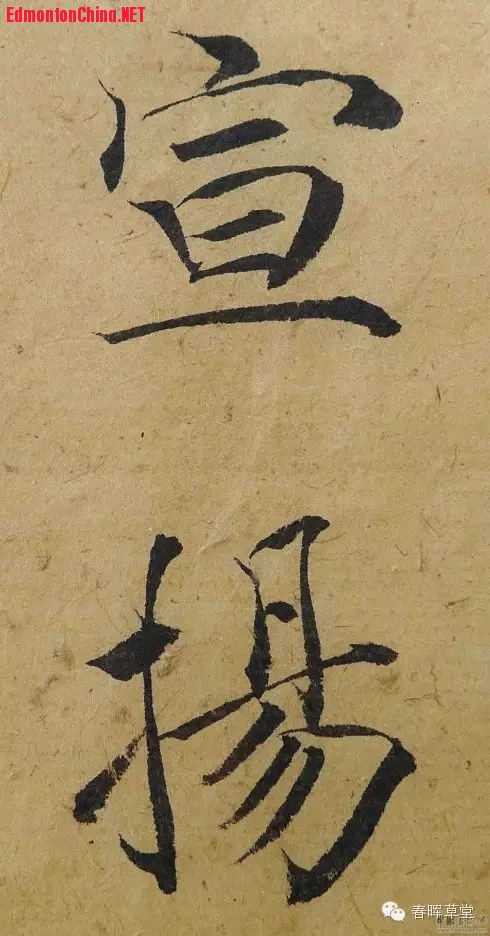 EdmontonChina.NET
宣
揚
春晖草堂